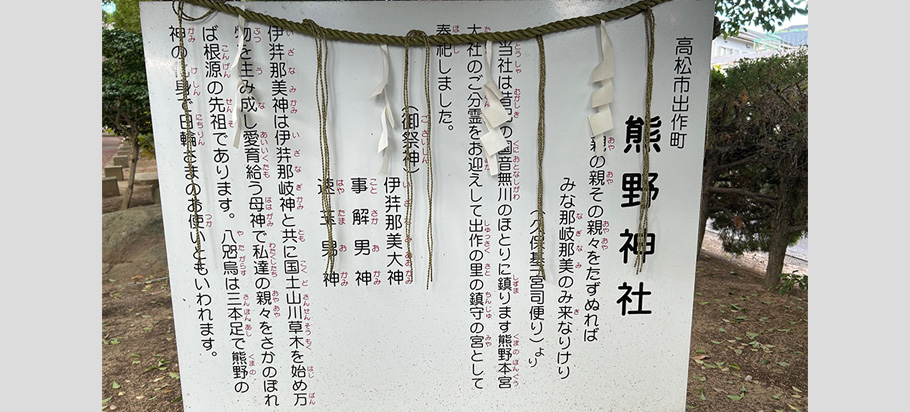 高松市出作町
熊野神社
親の親その親々をたずぬれば
みな那岐那美のみ来なりけり
(久保基宮司便り)より
当社は の国音無川のほとりに鎮ります熊野本宮
大社のご分霊をお迎えして出作の里の鎮守の宮として
奉祀しました。
(御祭神)
伊弉那美大神
事解男神
速玉男神
伊弉那美神は伊弉那岐神と共に国土山川草木を始め万
物を生み成し愛育給う母神で私達の親々をさかのぼれ
ば根源の先祖であります。八咫烏は三本足で熊野の
神の 身で日輪さまのお使いともいわれます。